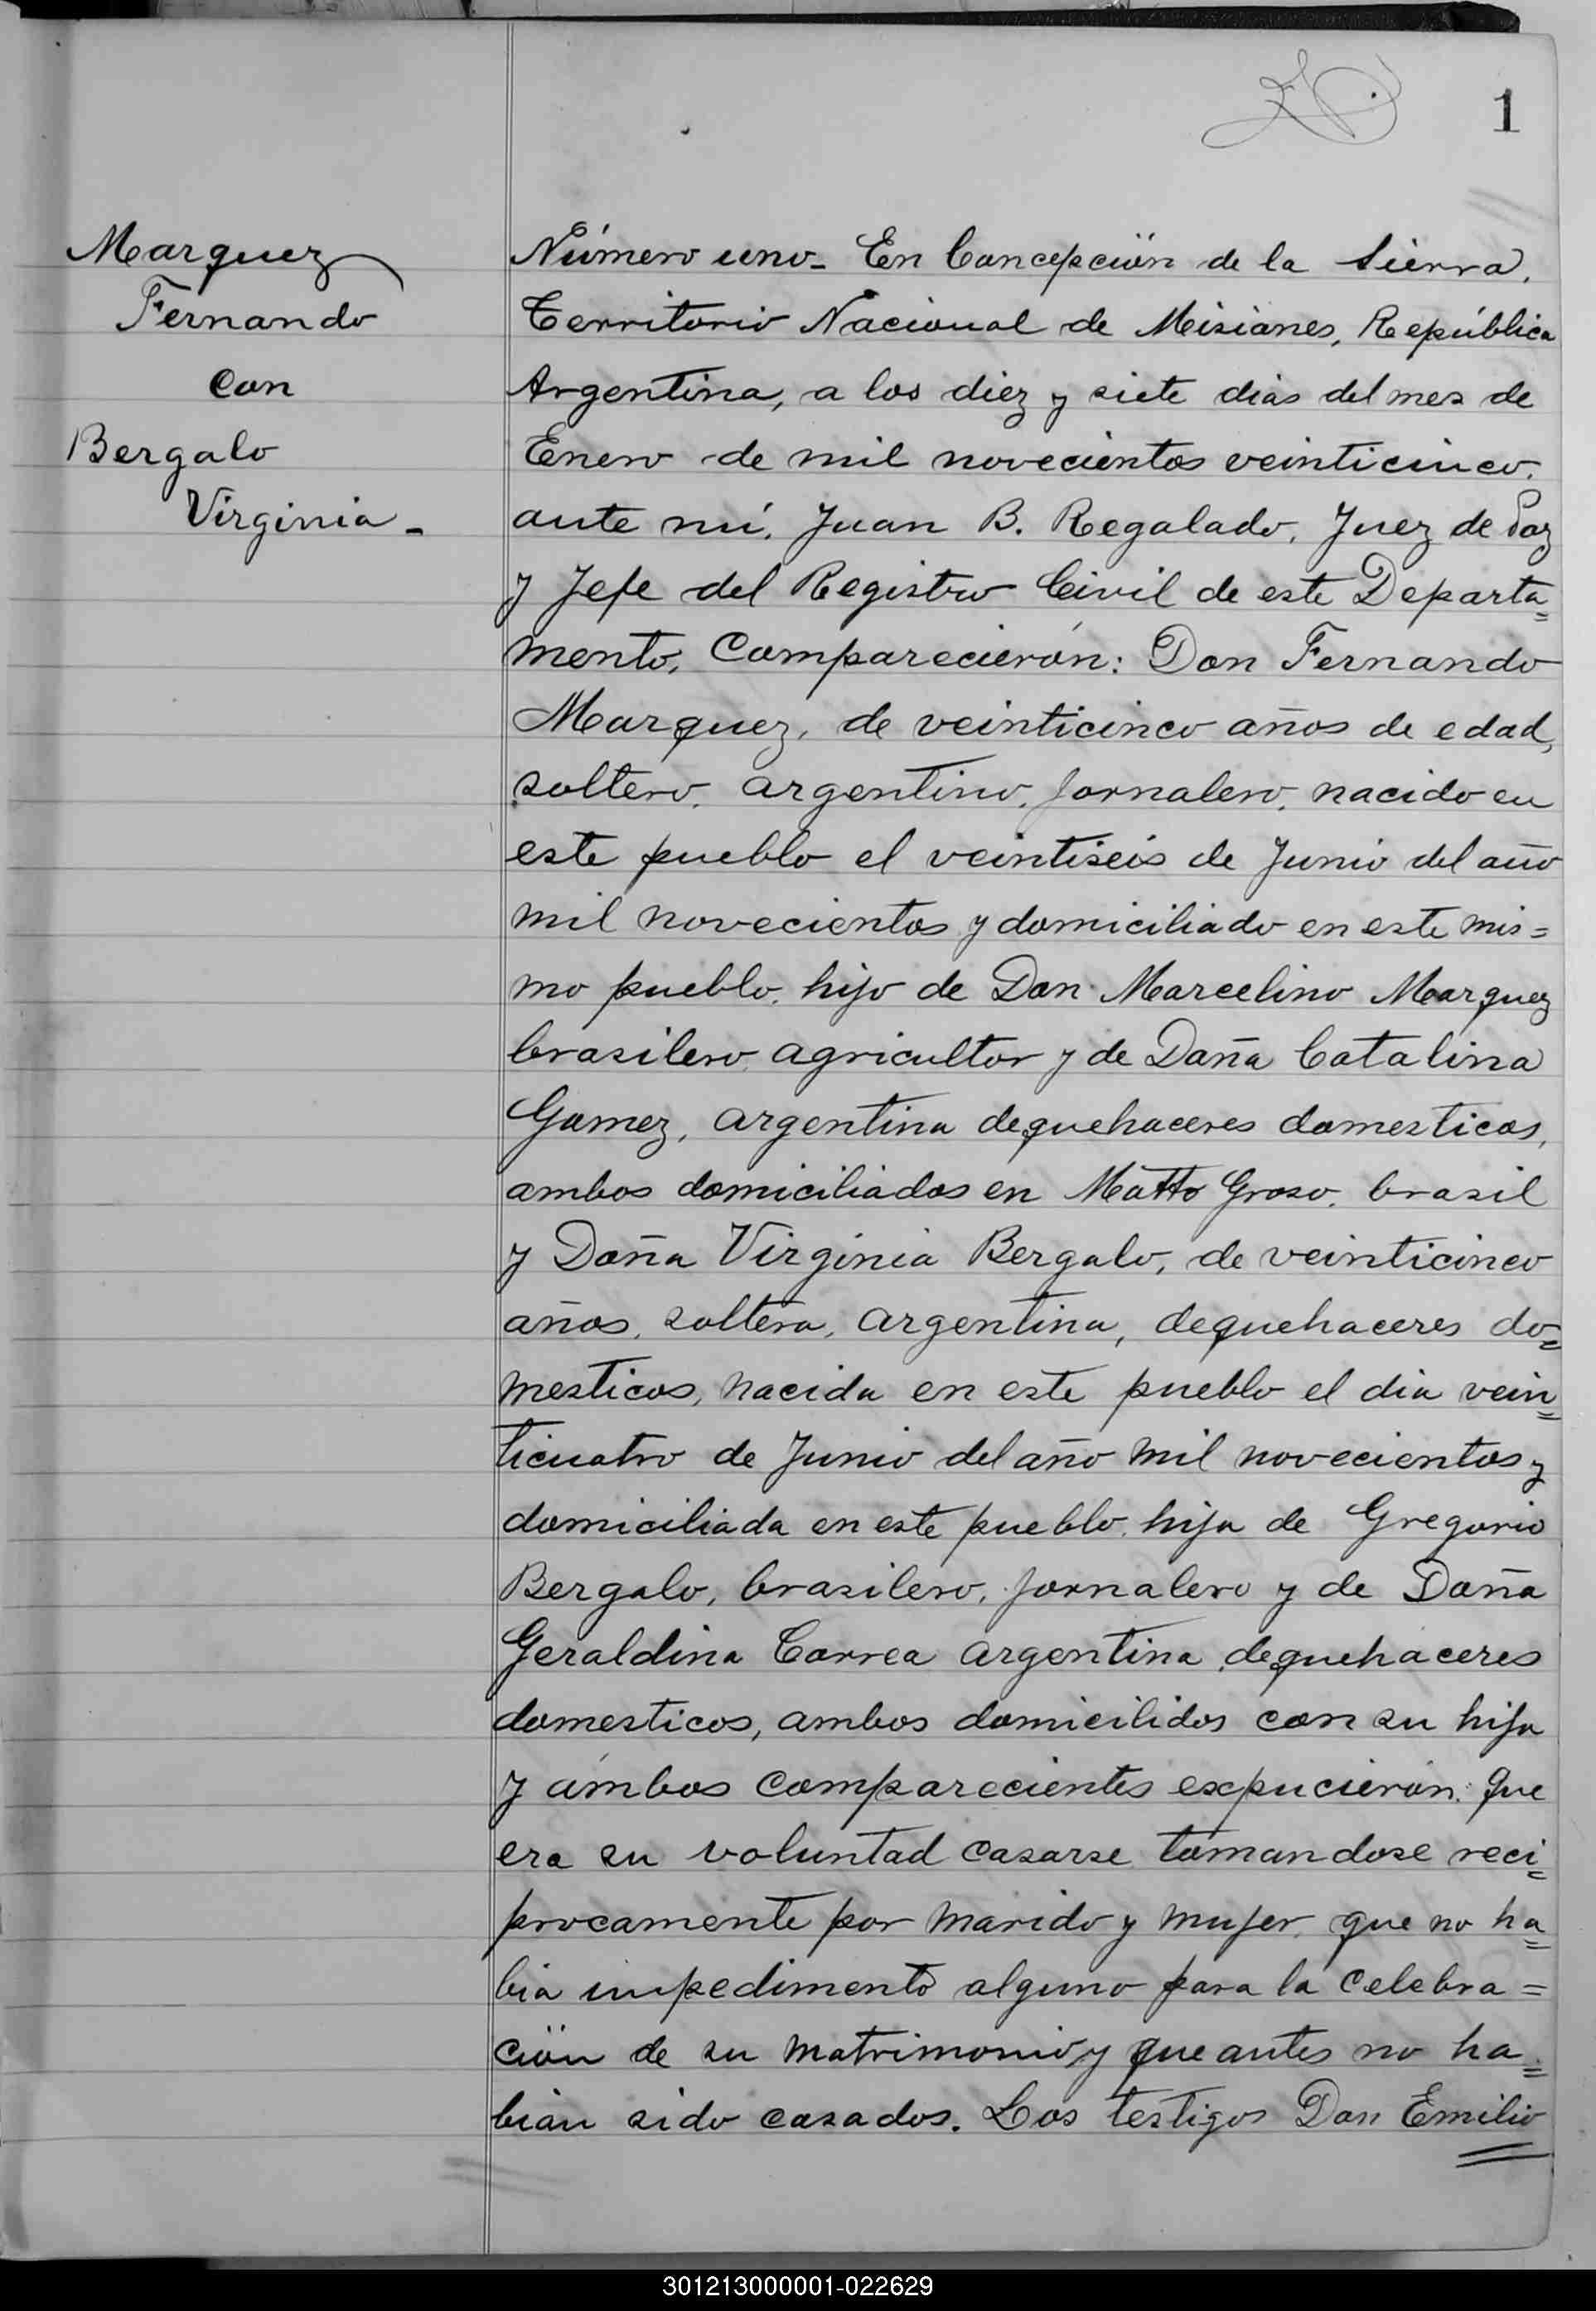 1
Marquez
Fernando
con
Bergalo
Virginia-
Número uno- En Concepción de la Sierra,
Territorio Nacional de Misiones, República
Argentina, a los diez y siete dias del mes de
Enero de mil novecientos veinticinco,
ante mi, Juan B. Regalado, Juez de Paz
y Jefe del Registro Civil de este Departa=
mento, Comparecierón: Don Fernando
Marquez, de veinticinco años de edad,
soltero, argentino, jornalero, nacido en
este pueblo el veintiseis de Junio del año
mil novecientos y domiciliado en este mis=
mo pueblo, hijo de Don Marcelino Marquez
brasilero, agricultor y de Doña Catalina
Gomez, argentina dequehaceres domesticos,
ambos domiciliados en Matto Groso, brasil
y Doña Virginia Bergalo, de veinticinco
años, soltera, argentina, dequehaceres do=
mesticos, nacida en este pueblo el dia vein=
ticuatro de Junio del año mil novecientos y
domiciliada en este pueblo, hija de Gregorio
Bergalo, brasilero, jornalero y de Doña
Geraldina Correa argentina, dequehaceres
domesticos, ambos domicilidos con su hija
y ámbos comparecientes expucierón: Que
era su voluntad casarse tomandose reci=
procamente por marido y mujer, que no ha=
bia impedimento alguno para la celebra=
ción de su matrimonio y que antes no ha=
bian sido casados. Los testigos Don Emilio
301213000001-022629